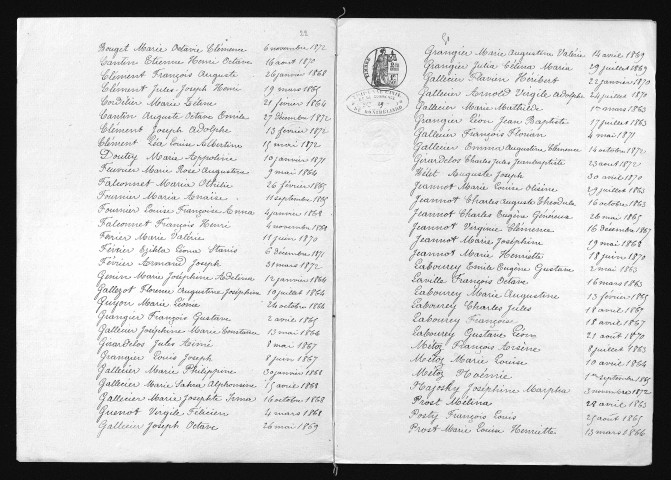 22
Bouget Marie Octavie Clémence 6 novembre 1872
Cantin Etienne Henri Octave 16 avril 1870
Clément François Auguste 26 janvier 1868
Clément Jules Joseph Henri 19 mars 1865
Cordier Marie 21 février 1864
Cantin Auguste Octave Emile 27 décembre 1872
Clément Joseph Adolphe 13 février 1872
Clément Léa Louise Albertine 15 mai 1872
Doutey Marie Appoline 10 janvier 1871
Fleurier Marie Rose Augustine 9 mai 1864
Falconnet Maria Othilie 26 février 1865
Fournier Maria 11 septembre 1865
Fournier Louise Françoise Anna 4 janvier 1868
Falconnet François Henri 4 novembre 1868
Ferrier Marie Valérie 11 juin 1870
Février Léona 6 décembre 1871
Février Armand Joseph 30 mars 1872
Genin Marie Joséphine Adelina 12 janvier 1864
Gallezot Florence Augustine Joséphine 10 juillet 1864
Guyon Marie Léonie 24 octobre 1864
Grangier François Gustave 2 avril 1865
Gallecier Joséphine Marie Constance 13 mai 1866
Girardelos Jules Aimé 8 mai 1867
Grangier Louis Joseph 8 juin 1867
Gallecier Marie Philippine 30 janvier 1868
Gallecier Marie Alphonsine 15 avril 1868
Gallecier Marie Josephte Irma 16 octobre 1868
Guenot Vergile Félicien 4 mars 1868
Gallecier Joseph Octave 26 mai 1869
Grangier Marie Augustine Valérie 14 avril 1869
Grangier Julia Célina Maria 29 juillet 1869
Gallecier Flavien Héribert 22 janvier 1870
Gallecier Arnold Virgile Adolphe 24 juillet 1870
Gallecier Marie Mathilde 1er mars 1863
Grangier Léon Jean Baptiste 17 juillet 1863
Gallecier François Florian 4 mai 1871
Gallecier Emma Augustine Clémence 14 octobre 1872
Girardelos Charles Jules Jean Baptiste 23 août 1872
Hélet Auguste Joseph 30 avril 1870
Jeannot Marie Louise Elisine 29 juillet 1863
Jeannot Charles Auguste Théodule 16 octobre 1863
Jeannot Charles Eugène Généreux 26 mai 1865
Jeannot Virginie Clémence 16 décembre 1867
Jeannot Marie Joséphine 19 mai 1868
Jeannot Marie Henriette 18 juin 1870
Labourey Emile Eugène Gustave 2 mai 1863
Laville François Octave 16 mars 1863
Labourey Marie Augustine 13 février 1865
Labourey Charles Jules 18 avril 1867
Labourey François 18 avril 1867
Labourey Gustave Léon 21 août 1870
Méloz François Arsène 8 juillet 1863
Méloz Marie Louise 10 avril 1864
Méloz Noémie 1er septembre 1865
Joséphine Marpha 3 novembre 1872
Prost Mélina 28 avril 1863
Posty François Louis 25 août 1865
Prost Marie Louisa Henriette 13 mars 1866